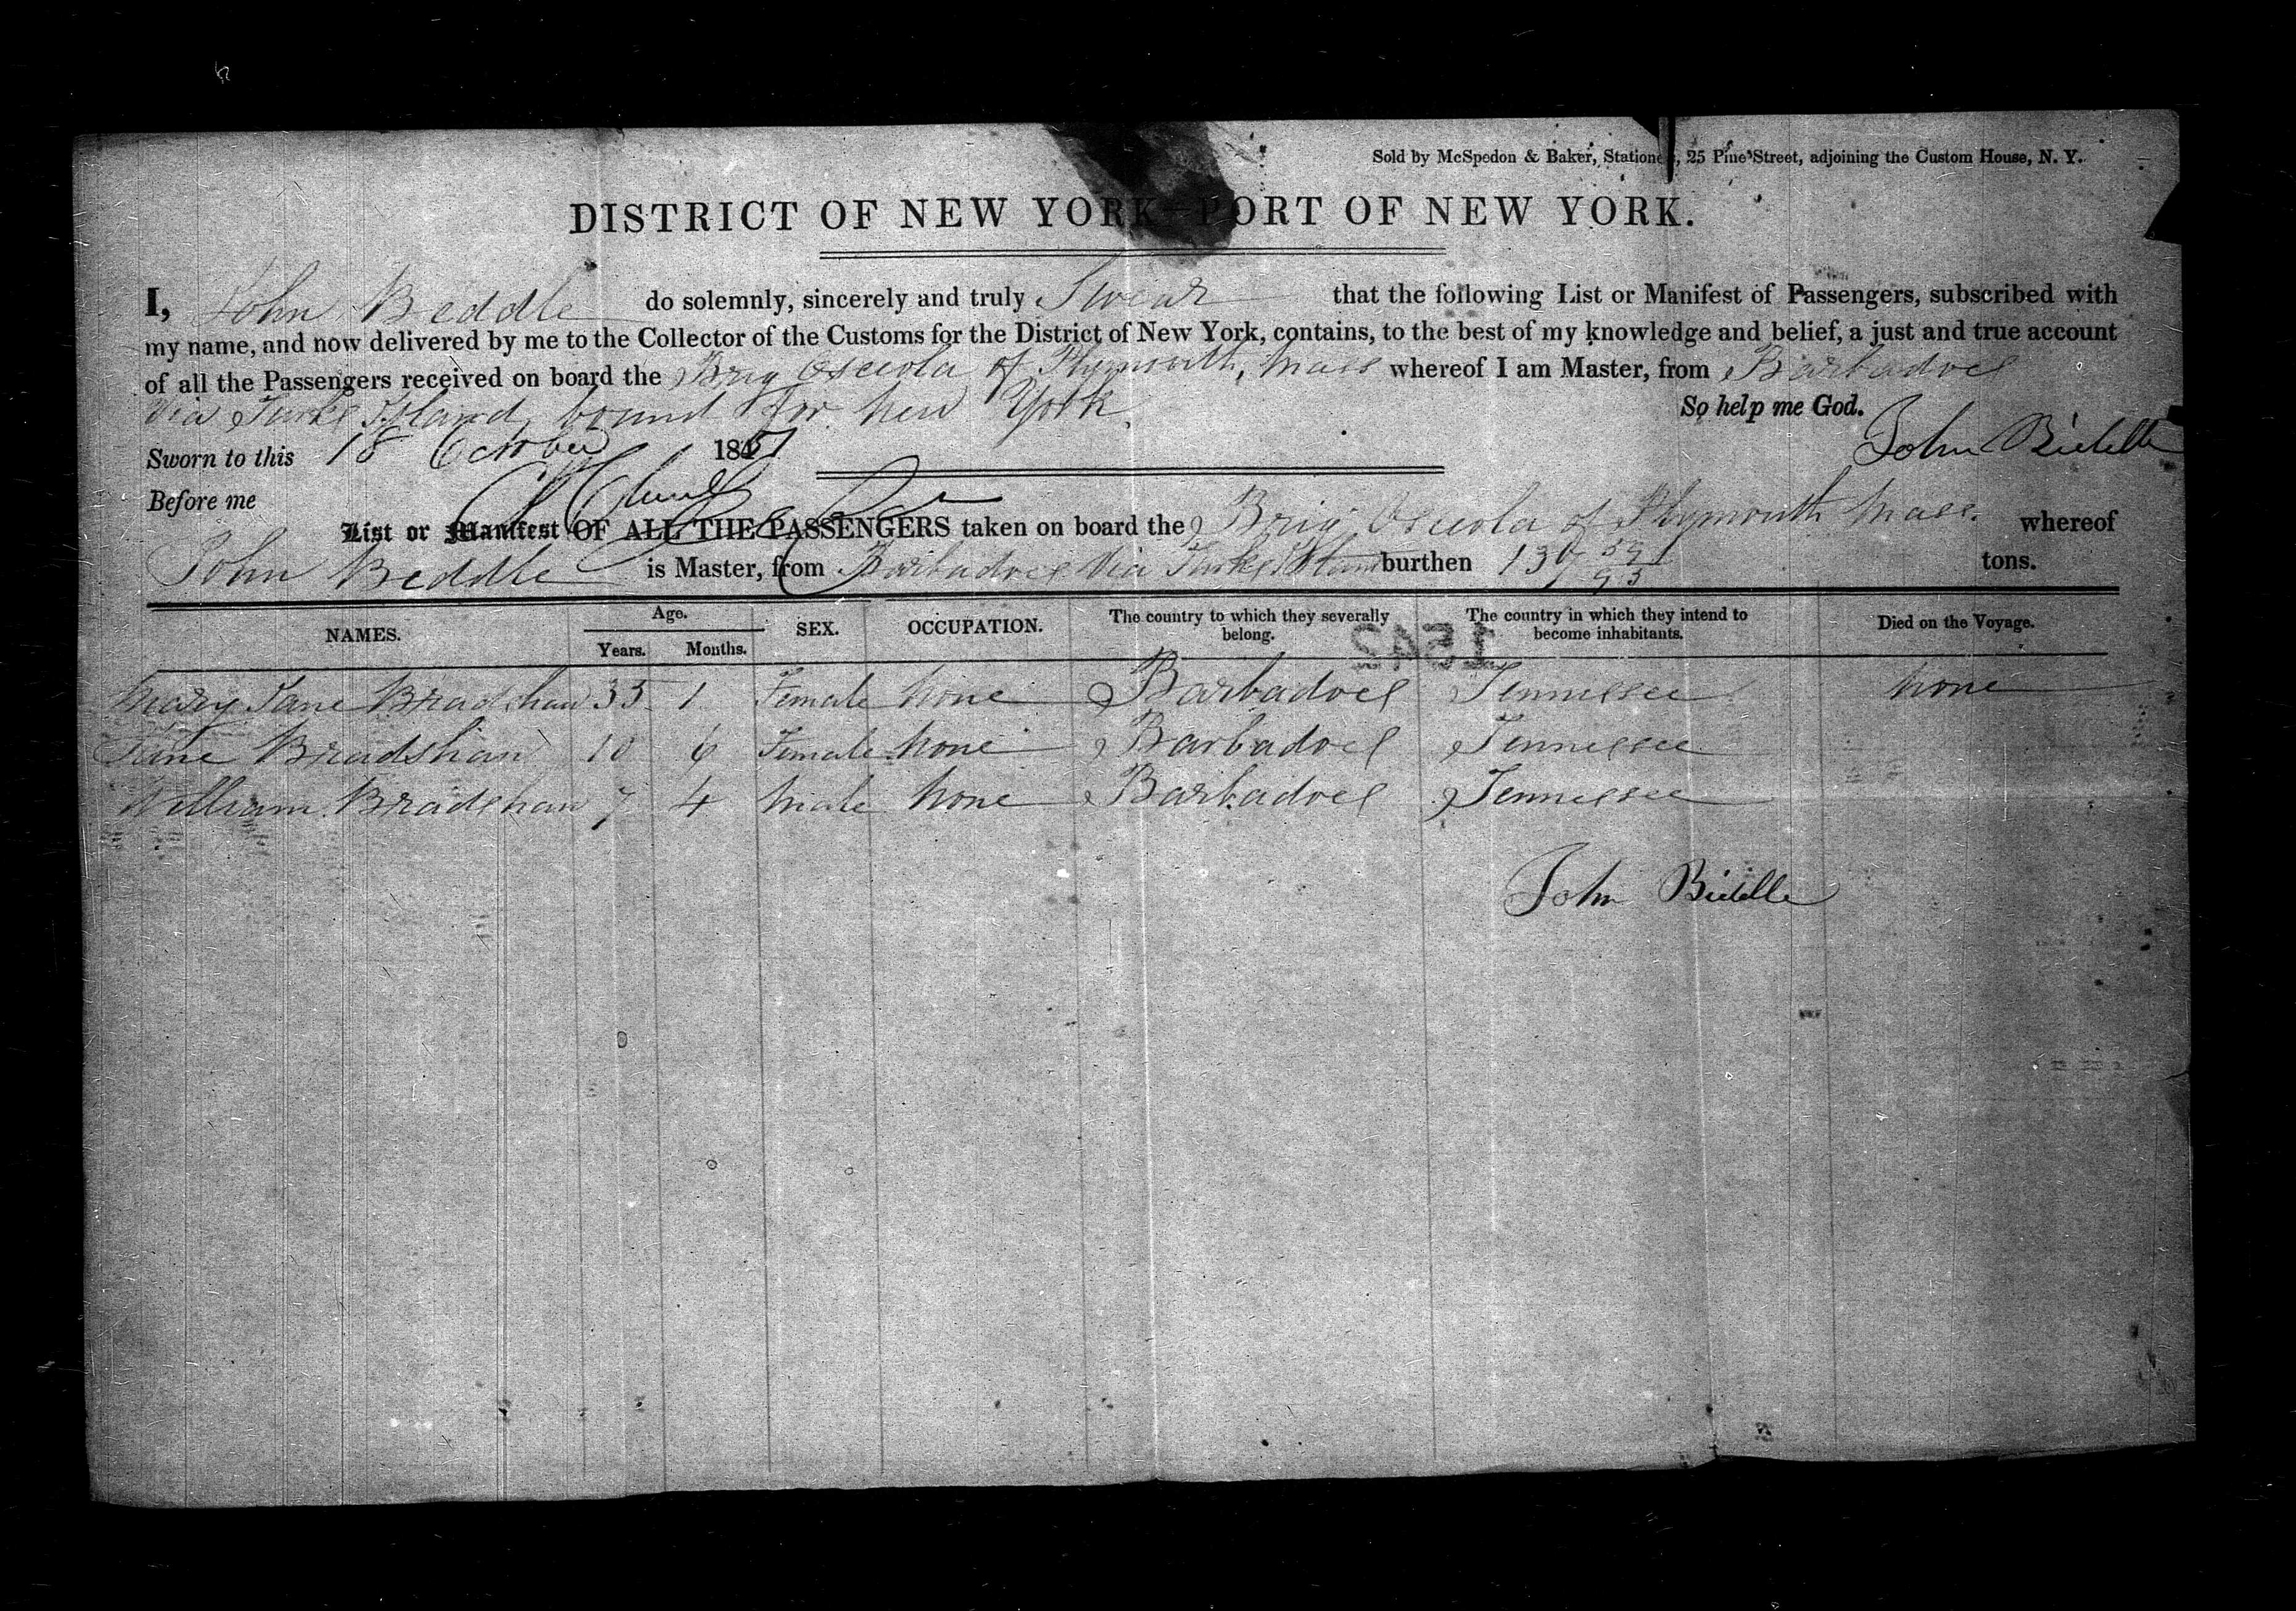 Sold by McSpedon & Baker, Stationers, 25 Pine Street, adjoining the Custom House, N. Y.
DISTRICT OF NEW YORK—PORT OF NEW YORK.
I, John Beddle do solemnly, sincerely and truly Swear that the following List or Manifest of Passengers, subscribed with
my name, and now delivered by me to the Collector of the Customs for the District of New York, contains, to the best of my knowledge and belief, a just and true account
of all the Passengers received on board the Brig Osceola of Plymouth, Mass whereof I am Master, from Barbadoes
Via Turks Island, bound for New York So help me God.
Sworn to this 18 October 1851 John Biddle
Before me
List or Manifest OF ALL THE PASSENGERS taken on board the Brig Osceola of Plymouth Mass. whereof
John Beddle is Master, from Barbadoes Via Turks Island burthen tons.
NAMES. Age. Years. Months. SEX. OCCUPATION. The country to which they severally belong. The country in which they intend to become inhabitants. Died on the Voyage.
1542
Mary Jane Bradshaw 35 1 Female None Barbadoes Tennessee None
Jane Bradshaw 10 6 Female None Barbadoes Tennessee
William Bradshaw 7 4 Male None Barbadoes Tennessee
John Biddle